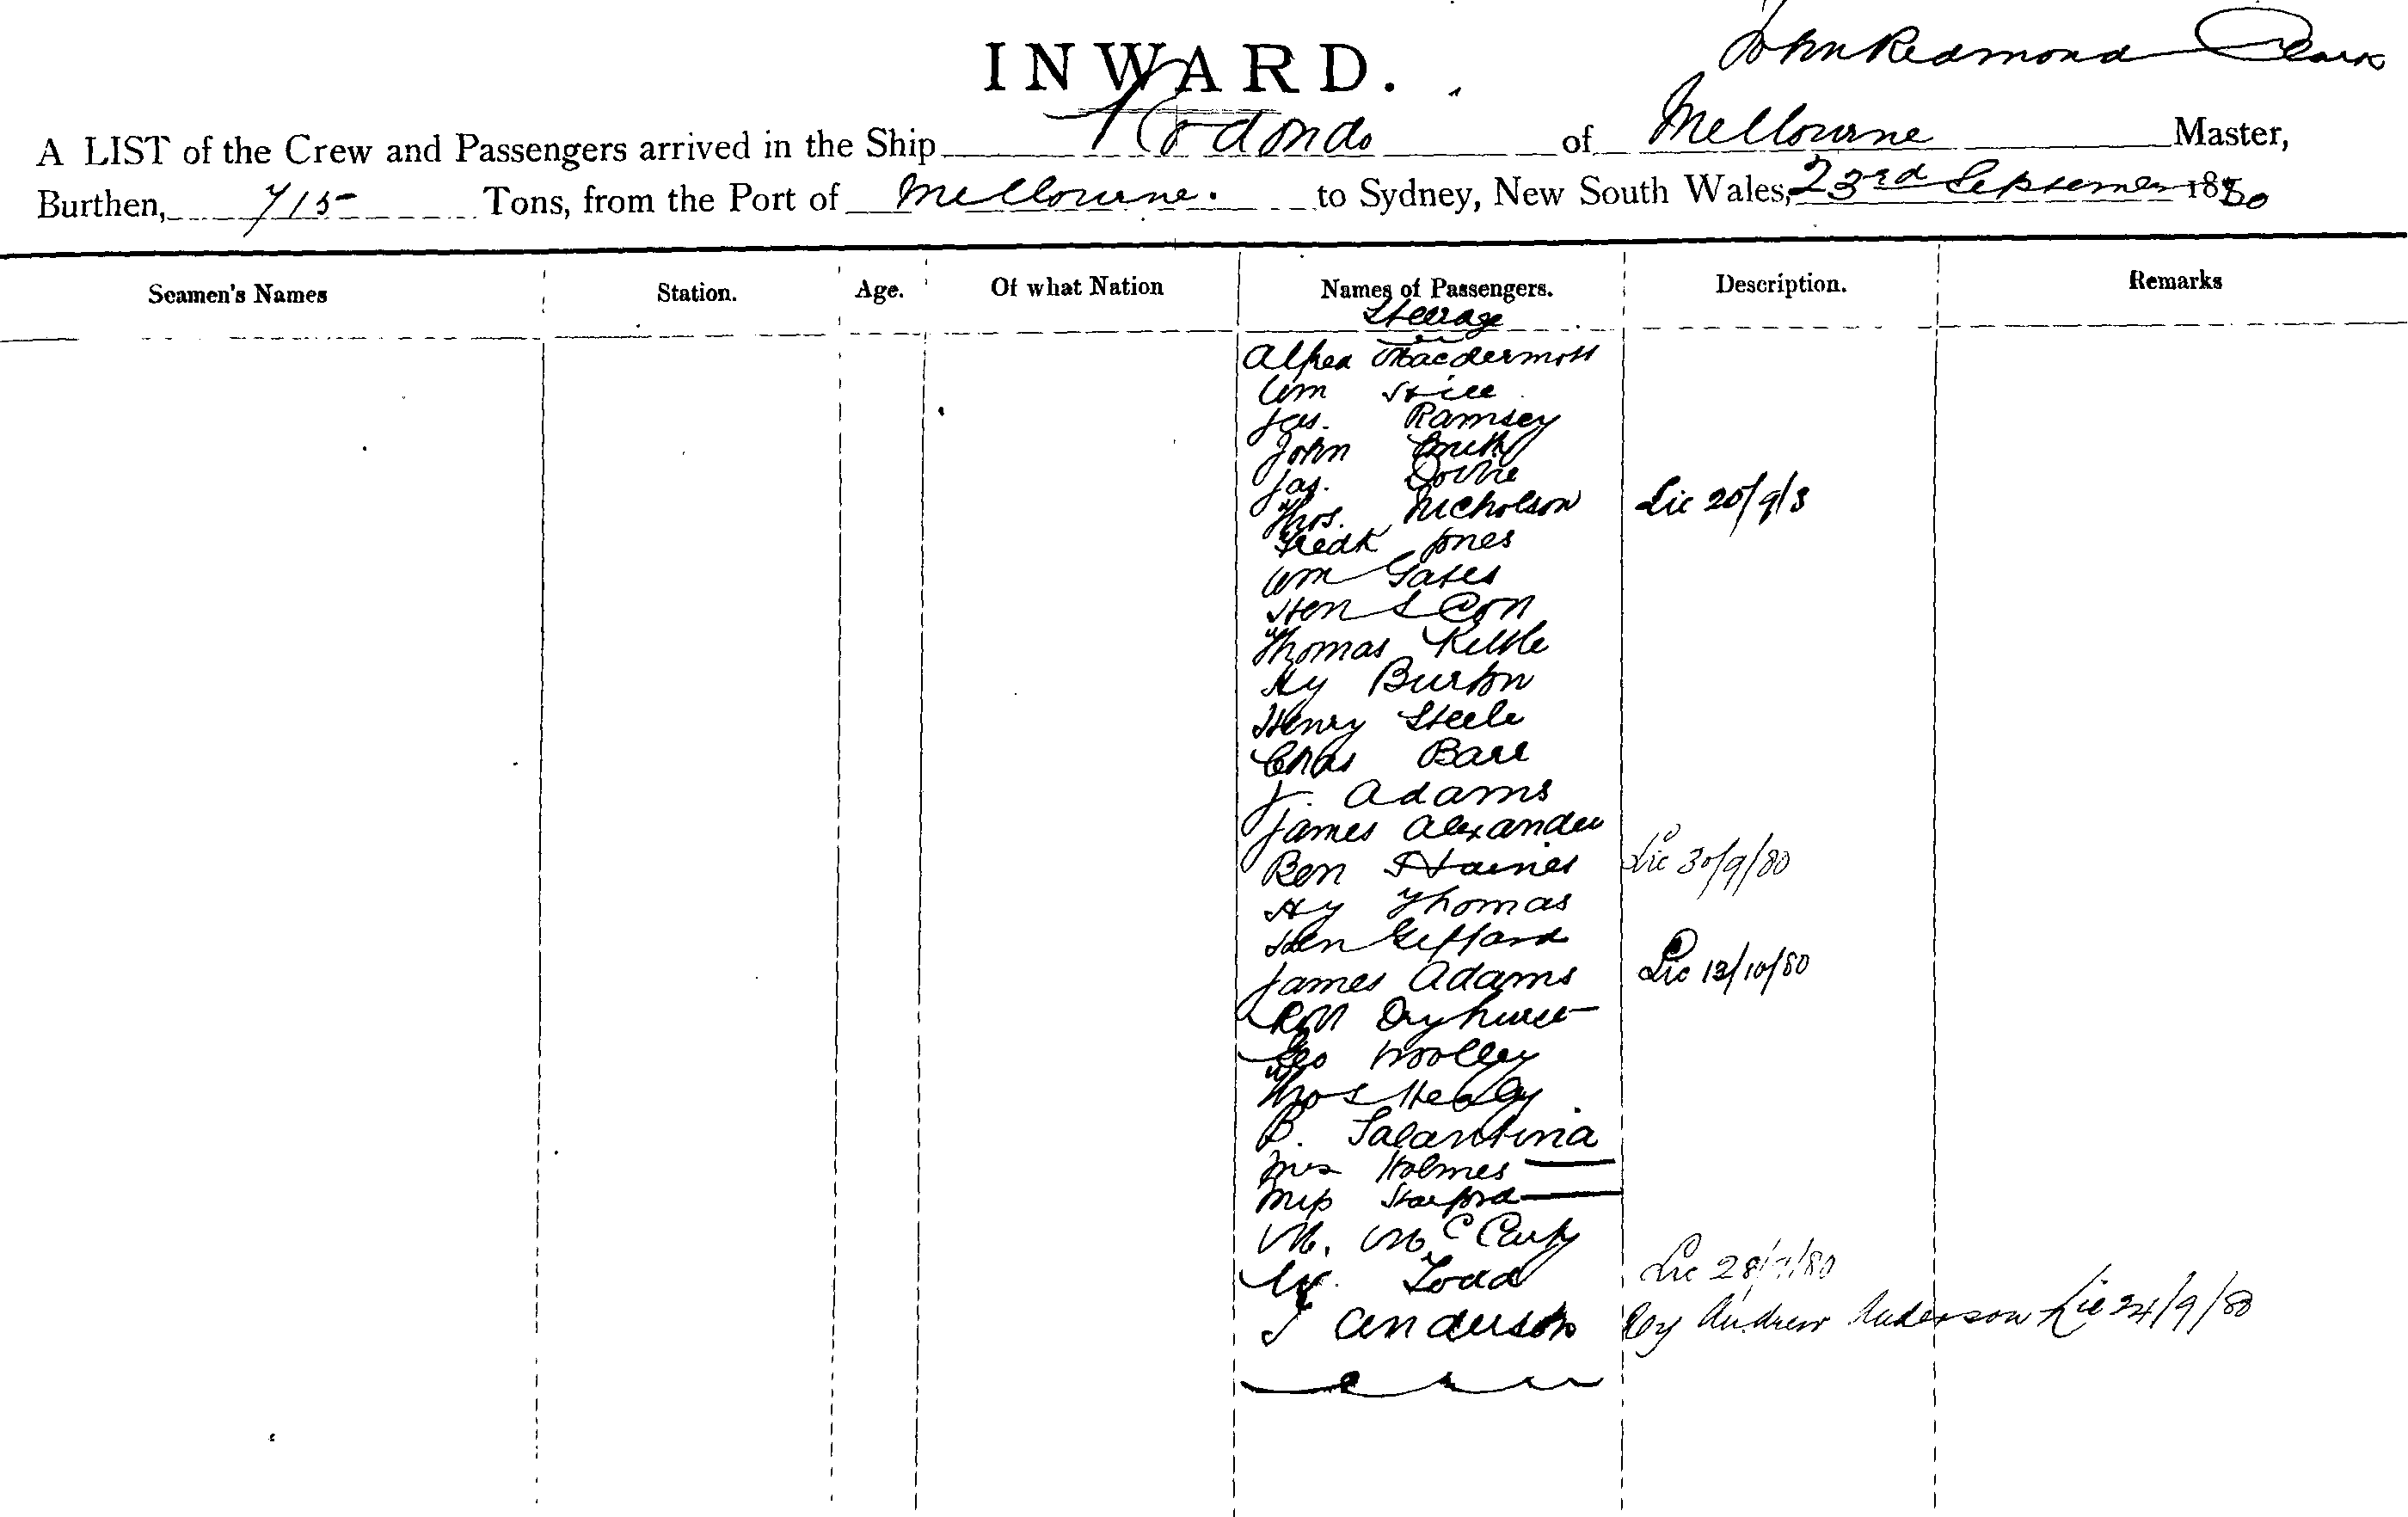 John Redmond Clark
INWARD.
A LIST of the Crew and Passengers arrived in the Ship Rodondo of Melbourne Master,
Burthen, 715 Tons, from the Port of Melbourne. to Sydney, New South Wales, 23rd September 1880
Seamen's Names Station. Age. Of what Nation Names of Passengers. Description. Remarks
Steerage
Alfred Macdermott
Wm Hill
Jas. Ramsey
John Smith
Jas.
Thos. Nicholson Lic 20/9/8
Fredk Jones
Wm Gates
Hen
Thomas Kettle
Hy Burton
Henry Steele
Chas Barr
J. Adams
James Alexander
Ben Haines Lic 30/9/80
Hy Thomas
Hen Giffard
James Adams Lic 13/10/80
Robt Dryhurst
Geo Woolley
Thos Healy
B. Salantina
Mrs Holmes
Miss
M. McCarty
W. Todd Lic 28/9/80
J Anderson Andrew Anderson Lic 24/9/80